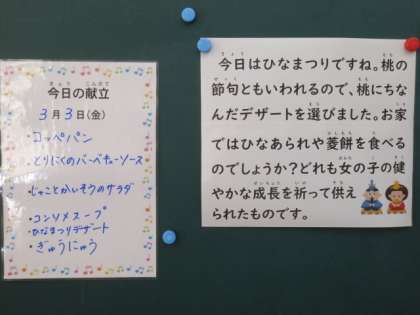 今日の献立
3月3日(金)
・コッペパン
・とりにくのバーベキューソース
・じゃことかいそうのサラダ
・コンソメスープ
・ひなまつりデザート
・ぎゅうにゅう
今日はひなまつりですね。桃の
節句ともいわれるので、桃にちな
んだデザートを選びました。お家
ではひなあられや菱餅を食べる
のでしょうか?どれも女の子の健
やかな成長を祈って供え
られたものです。